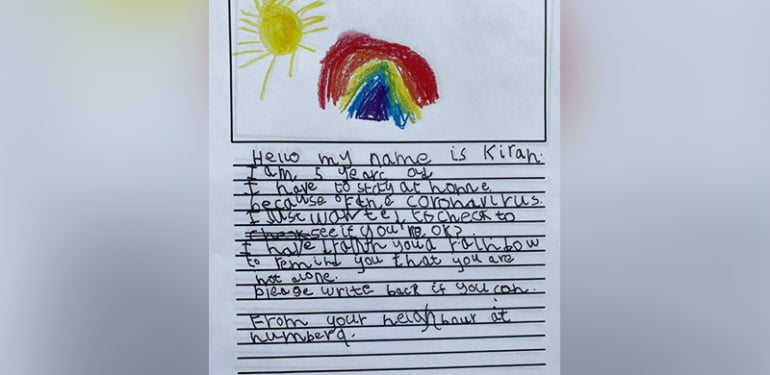 Hello my name is Kirah.
I am 5 years old
I have to stay at home
because of the coronavirus.
I Just wanted to check to
see if you're ok?
I have you a rainbow
to remind you that you are
not alone.
please write back if you can.
From your neighbour at
number 9.